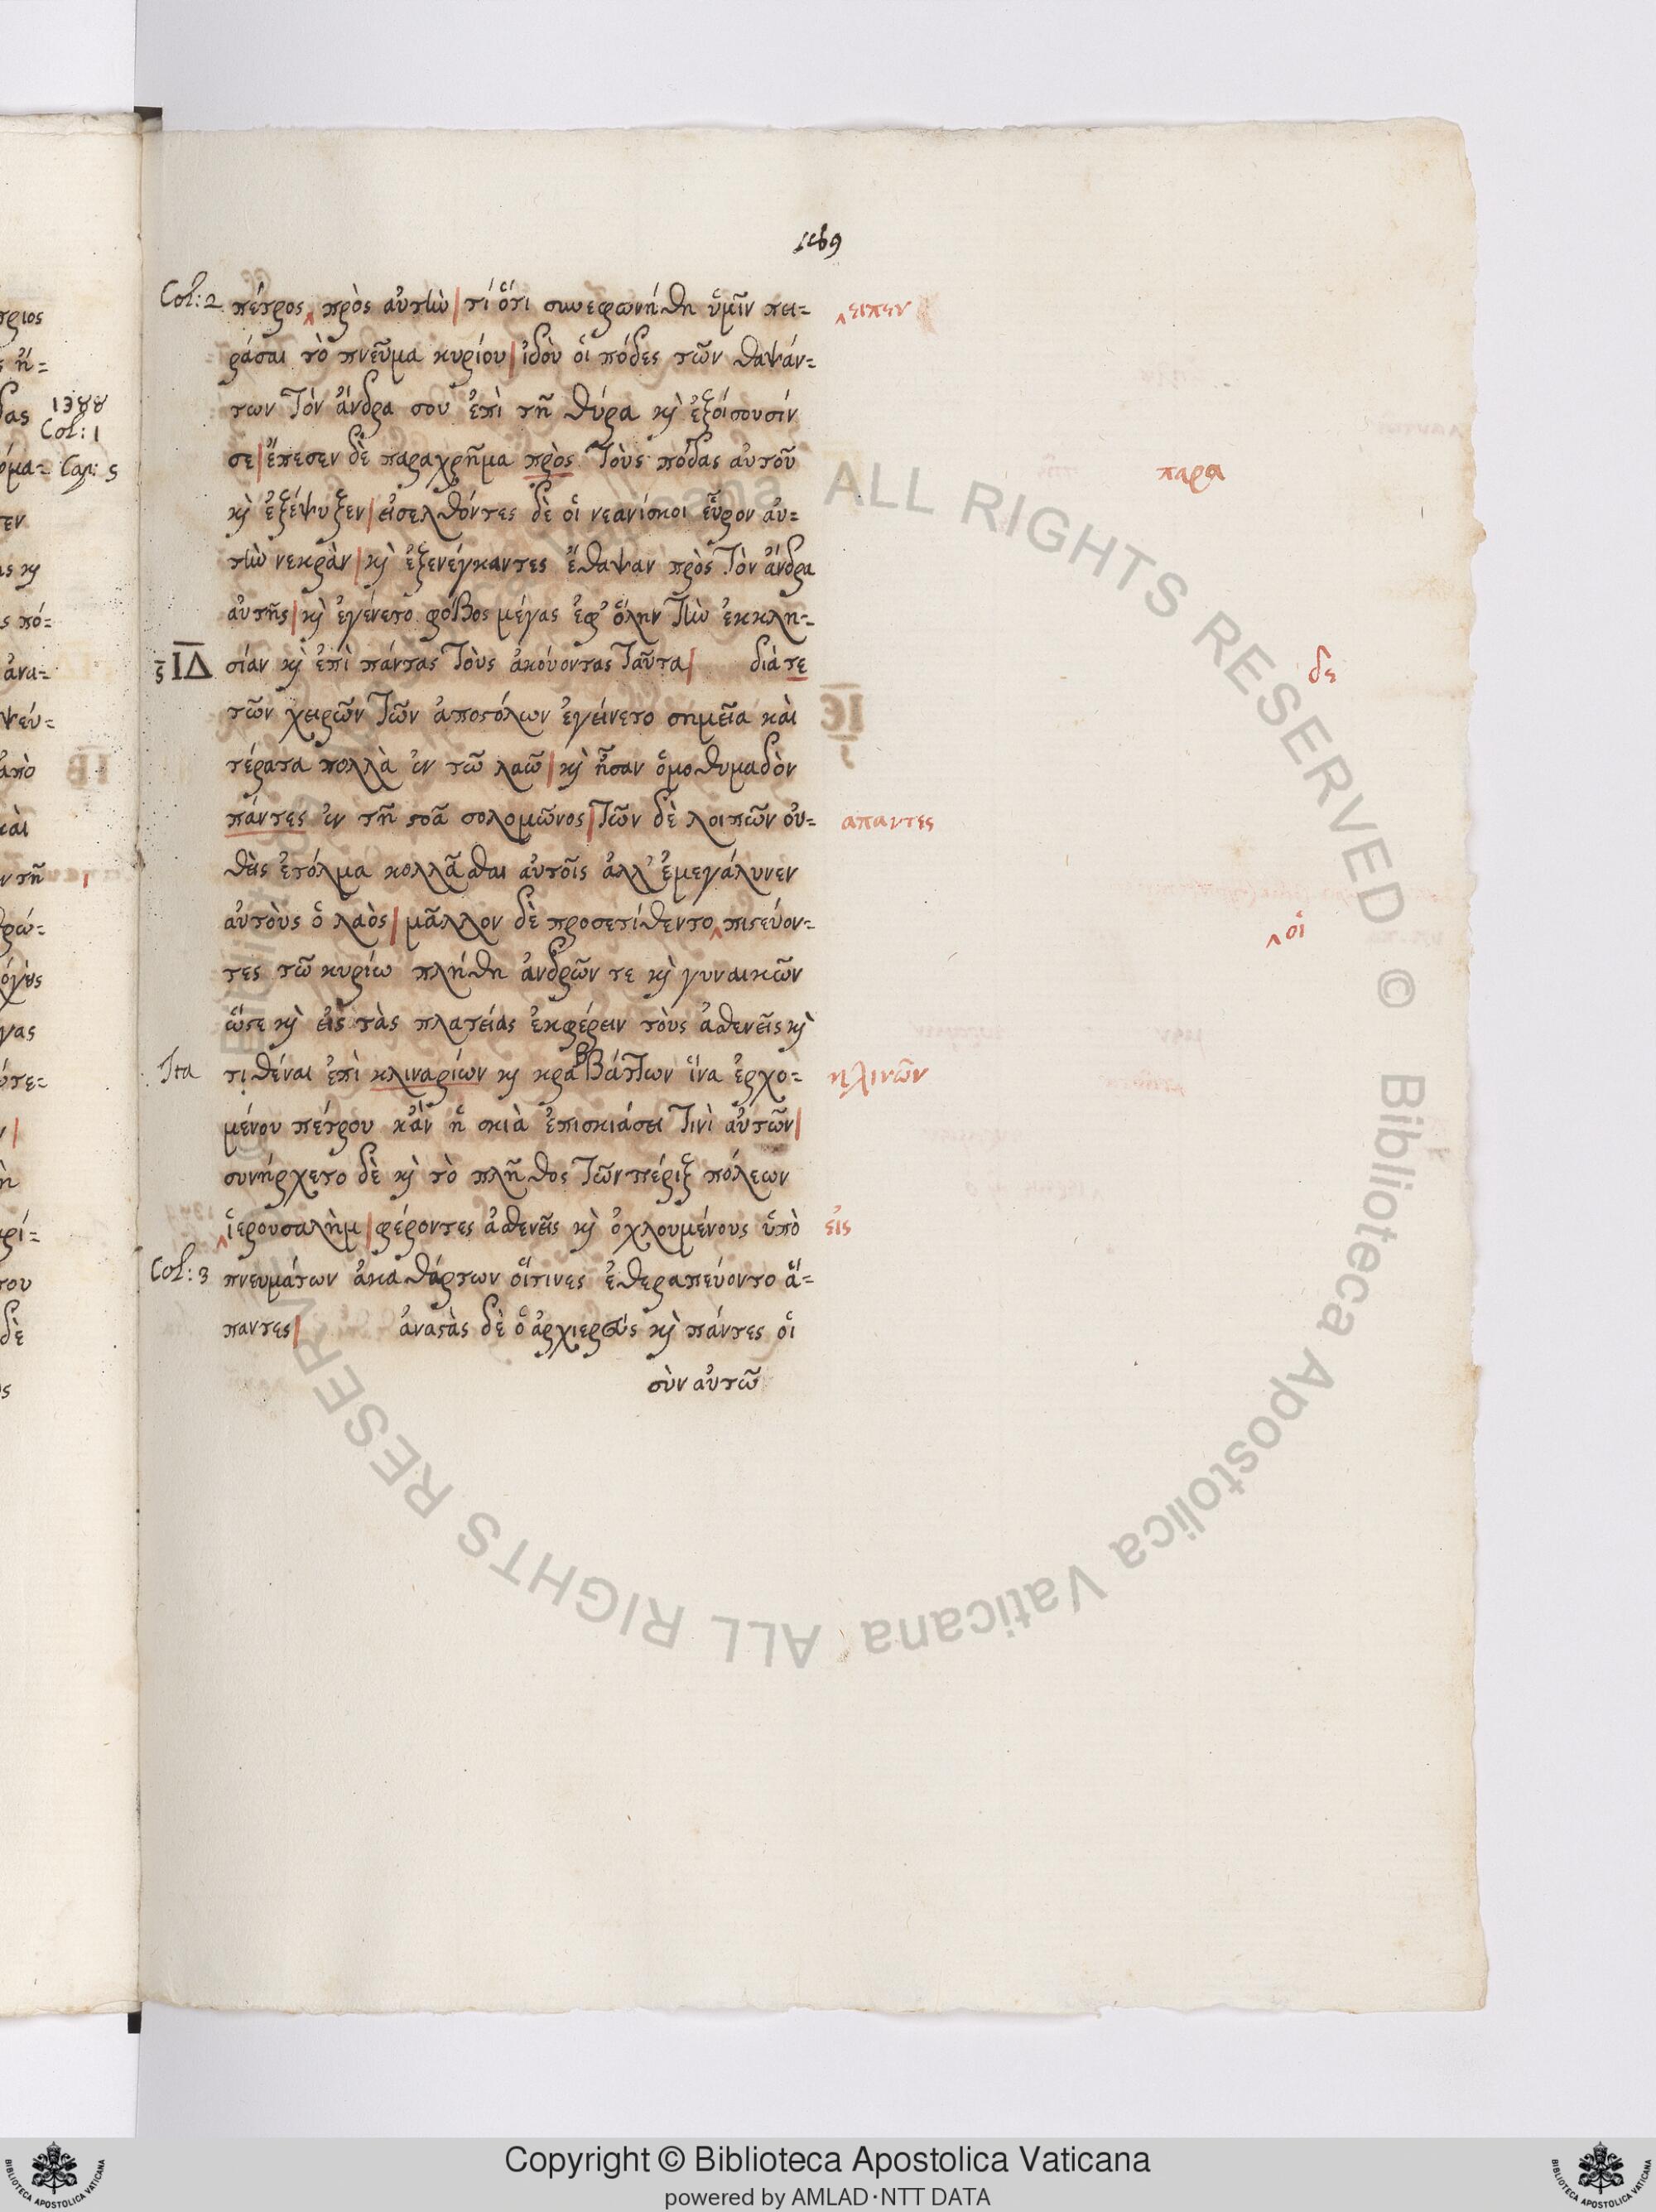 Col: 2 πέτρος ‸ πρὸς αὐτὴν | τί ὅτι συνεφωνήθη ὑμῖν πει= ‸ ειπεν
ράσαι τὸ πνεῦμα κυρίου | ἰδοὺ οἱ πόδες τῶν θαψάν=
των τὸν ἄνδρα σου ἐπὶ τῆ θύρα κỳ ἐξοίσουσίν
σε | ἔπεσεν δὲ παραχρῆμα πρὸς τοὺς πόδας αὐτοῦ παρα
κỳ ἐξέψυξεν | εἰσελθόντες δὲ οἱ νεανίσκοι εὗρον αὐ=
τὴν νεκρὰν | κỳ ἐξενέγκαντες ἔθαψαν πρὸς τὸν ἄνδρα
αὐτῆς | κỳ ἐγένετο φόβος μέγας ἐφ' ὅλην τὴν ἐκκλη=
ΙΔ σίαν κỳ ἐπὶ πάντας τοὺς ἀκούοντας ταῦτα | διὰ τε δε
τῶν χειρῶν τῶν ἀποστόλων ἐγείνετο σημεῖα καὶ
τέρατα πολλὰ ἐν τῶ λαῶ | κỳ ἦσαν ὁμοθυμαδὸν
πάντες ἐν τῆ στοᾶ σολομῶνος | τῶν δὲ λοιπῶν οὐ= απαντες
θεὶς ἐτόλμα κολλᾶσθαι αὐτοῖς ἀλλ' ἐμεγάλυνεν
αὐτοὺς ὁ λαὸς | μᾶλλον δὲ προσετίθεντο ‸ πιστεύον= ‸ οἱ
τες τῶ κυρίω πλήθη ἀνδρῶν τε κỳ γυναικῶν
ὥστε κỳ εἰς τὰς πλατείας ἐκφέρειν τοὺς ἀσθενεῖς κỳ
Ita τιθέναι ἐπὶ κλιναρίων κỳ κραβάττων ἵνα ἐρχο= κλινῶν
μένου πέτρου κἂν ἡ σκιὰ ἐπισκιάσει τινὶ αὐτῶν |
συνήρχετο δὲ κỳ τὸ πλῆθος τῶν πέριξ πόλεων
‸ ἱερουσαλὴμ | φέροντες ἀσθενεῖς κỳ ὀχλουμένους ὑπὸ εἰς
Col: 3 πνευμάτων ἀκαθάρτων οἵτινες ἐθεραπεύοντο ἅ=
παντες | ἀναστὰς δὲ ὁ ἀρχιερεὺς κỳ πάντες οἱ
σὺν αὐτῶ
1388
Col: 1
Cap: 5
ALL RIGHTS RESERVED © Biblioteca Apostolica Vaticana
Copyright © Biblioteca Apostolica Vaticana
powered by AMLAD·NTT DATA
BIBLIOTECA APOSTOLICA VATICANA
BIBLIOTECA APOSTOLICA VATICANA